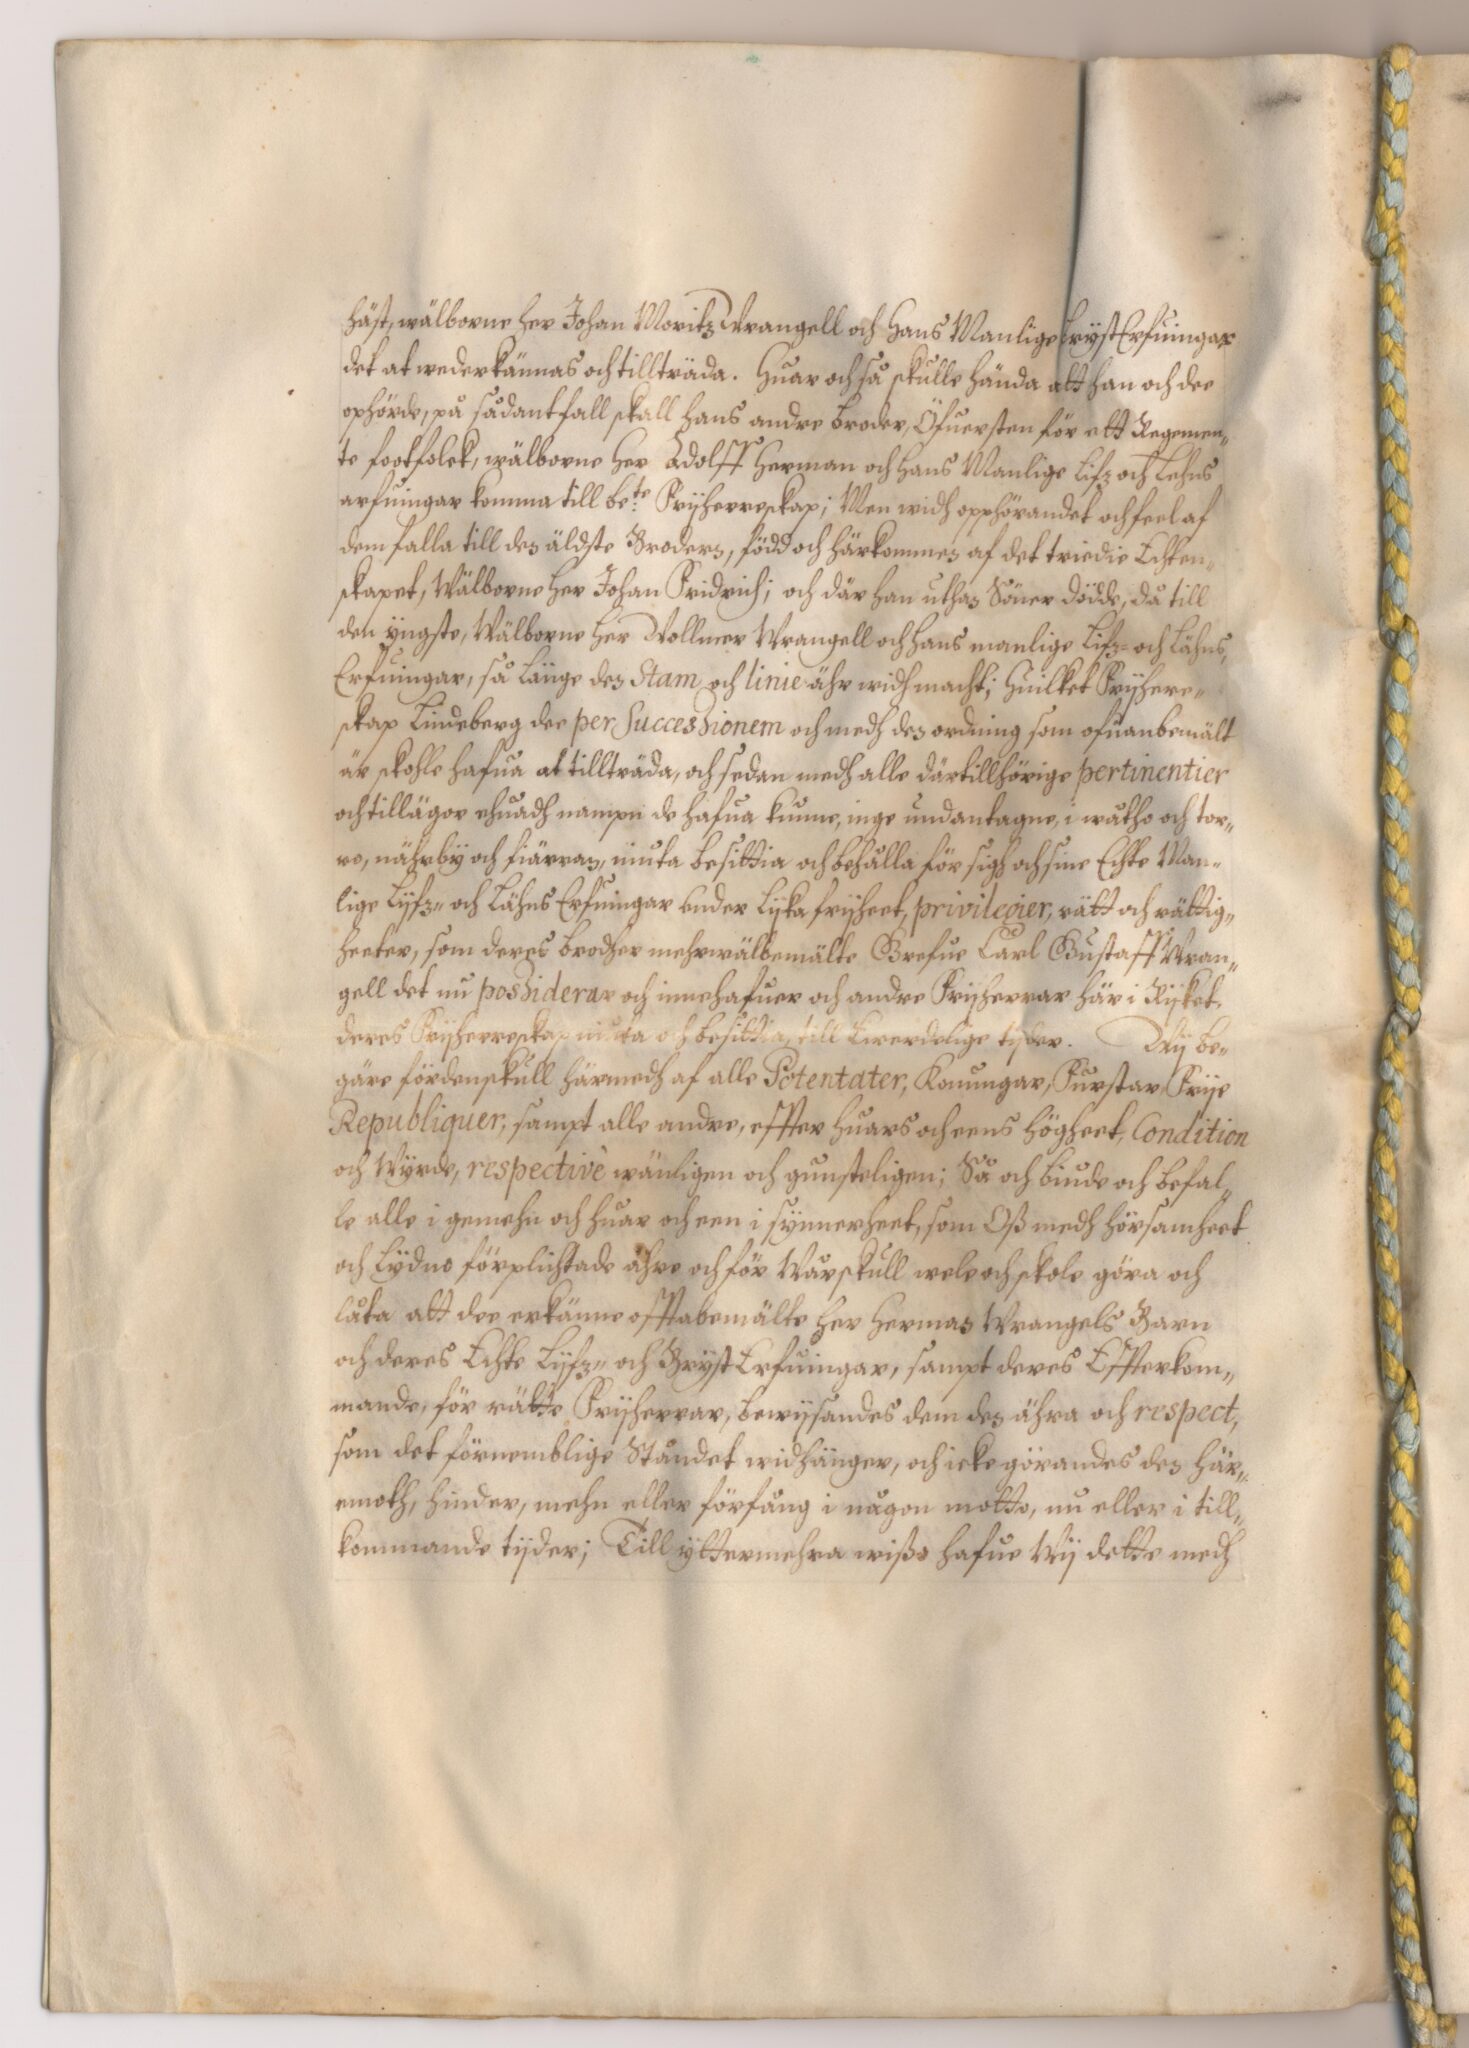 häst, wälborne her Johan Moritz Wrangell och Hans Manlige BrystErfuingar
det at wederkännas och tillträda. Huar och så skulle hända att han och dee
ophörde, på sådant fall skall hans andre broder, Öfuersten för ett Regemen„
te footfolck, wälborne her Adolff Herman och hans Manlige Lifz och Lehns
arfuingar komma till be:te Frijherreskap; Men widh opphörandet och feel af
dem falla till den äldste Broderen, född och härkommen af det triedie Echten„
skapet, Wälborne her Johan Fridrich; och där han uthan Söner dödde, då till
den yngste, Wälborne her Wollmer Wrangell och hans manlige Lifz= och Lähns,
Erfuingar, så länge den Stam och linie ähr widh macht; Huilket Frijherre„
skap Lindeberg dee per Successionem och medh den ordning som ofuanbemält
är skohle hafua at tillträda, och sedan medh alle därtillhörige pertinentier
och tillägor ehuadh nampn de hafua kunne, inge undantagne, i wåtho och tor„
ro, nährby och fiärran, niuta besittia och behålla för sigh och sine Echte Man„
lige Lijfz„ och Lähns Erfuingar under Lijka frijheet, privilegier, rätt och rättig„
heeter, som deres brodher mehrwälbemälte Grefue Carl Gustaff Wran„
gell det nu possiderar och innehafuer och andre Frijherrar här i Rijket,
deres Frijherreskap niuta och besittia, till Ewerdelige tijder. Wij be„
gäre fördenskull härmedh af alle Potentater, Konungar, Furstar, Frije
Republiquer, sampt alle andre, effter huars och eens Högheet, Condition
och Wyrde, respectivè wänligen och gunsteligen; Så och biude och befal„
le alle i gemehn och huar och een i synnerheet, som Oß medh hörsamheet
och Lydno förplichtade ähre och för Wår skull wele och skole göra och
låta att dee erkänne offtabemälte her Herman Wrangels Barn
och deres Echte Lijfz„ och BrystErfuingar, sampt deres Effterkom„
mande, för rätte Frijherrar, bewijsandes dem den ähra och respect,
som det förnemblige Ståndet widhänger, och icke görandes den här„
emoth, hinder, mehn eller förfång i någon motto, nu eller i till„
kommande tijder; Till yttermehra wißo hafue Wij dette medh